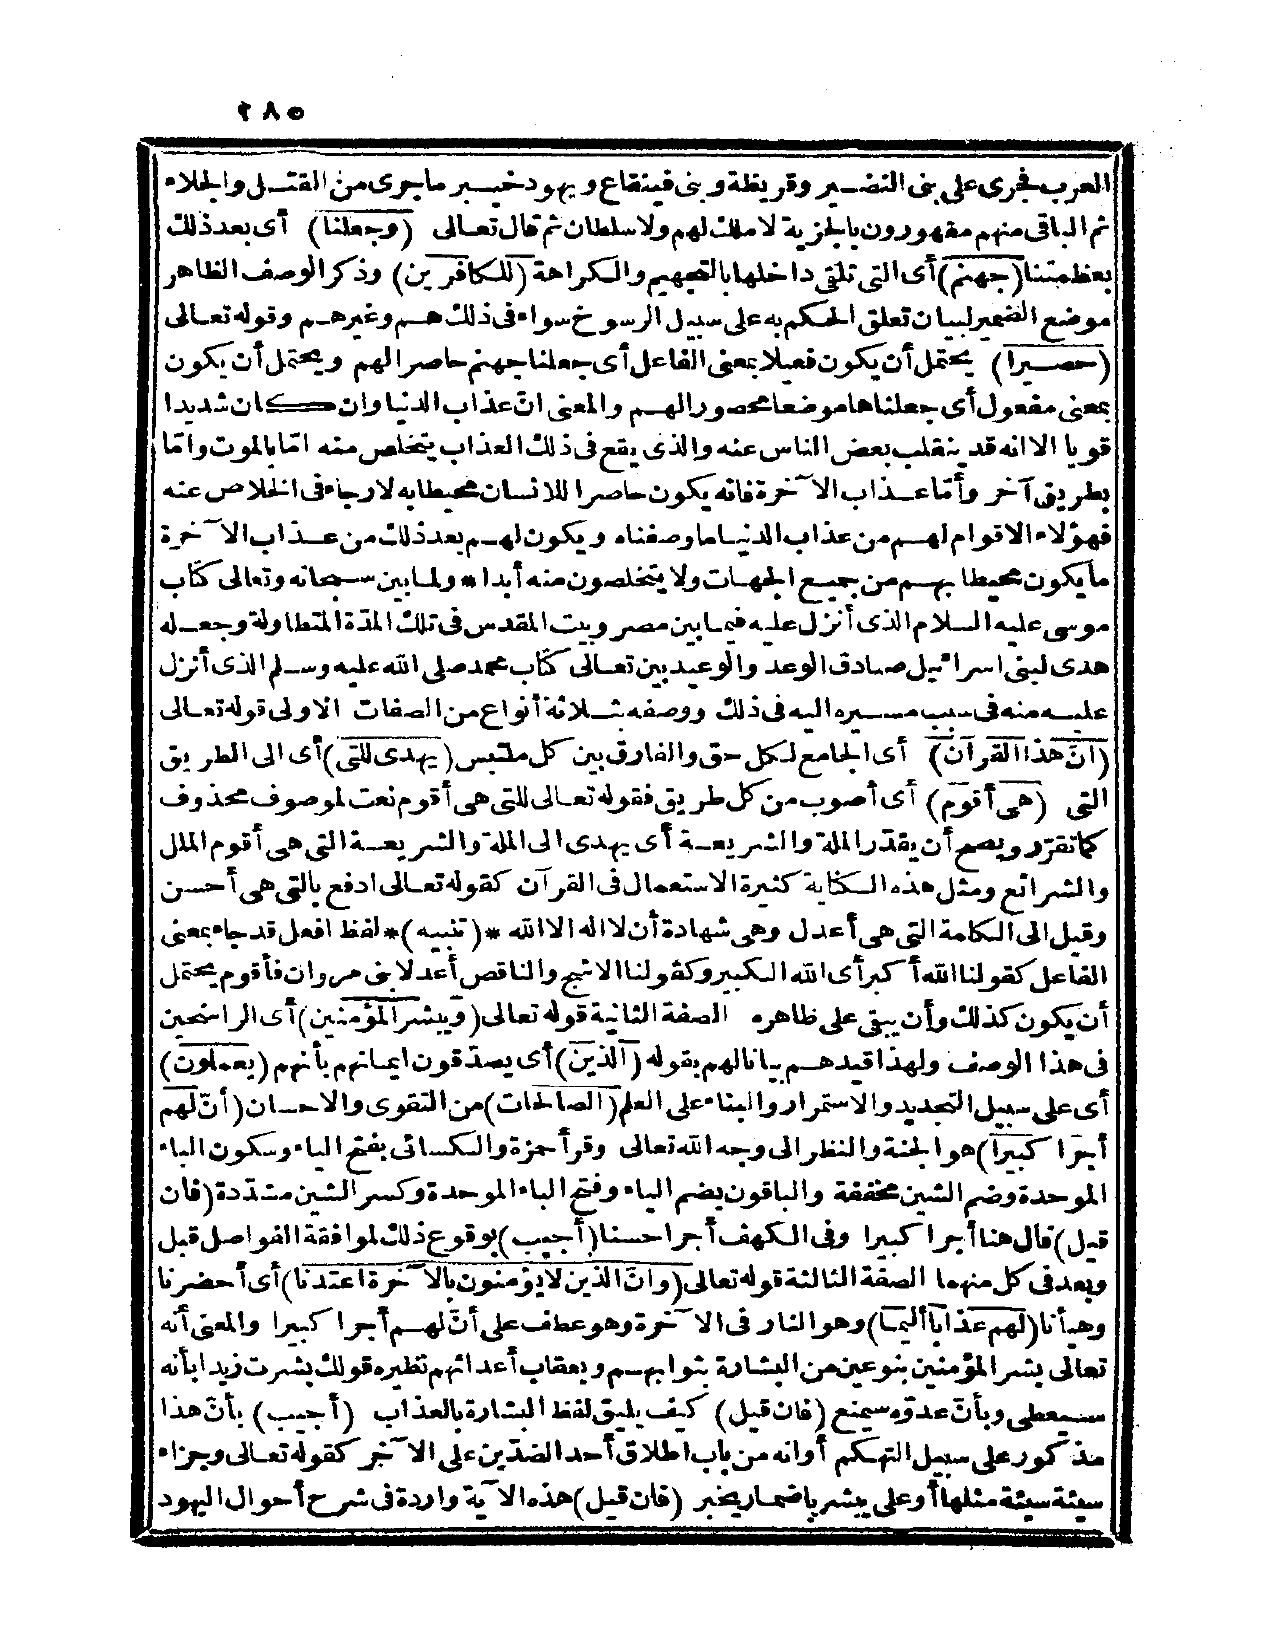 ٢٨٥
العرب فجرى على بنى النضير وقريظة وبنى قينقاع ويهود خيبر ما جرى من القتل والجلاء
ثم الباقى منهم مقهورون بالجزية لا ملك لهم ولا سلطان ثم قال تعالى (وجعلنا) أى بعد ذلك
بعظمتنا (جهنم) أى التى تلقى داخلها بالتجهم والكراهة (للكافرين) وذكر الوصف الظاهر
موضع الضمير لبيان تعلق الحكم به على سبيل الرسوخ سواء فى ذلك هم وغيرهم وقوله تعالى
(حصيرا) يحتمل أن يكون فعيلا بمعنى الفاعل أى جعلنا جهنم حاصرا لهم ويحتمل أن يكون
بمعنى مفعول أى جعلناها موضعا محصورا لهم والمعنى انّ عذاب الدنيا وان كان شديدا
قويا الا انه قد ينقلب بعض الناس عنه والذى يقع فى ذلك العذاب يتخلص منه امّا بالموت وامّا
بطريق آخر وأمّا عذاب الآخرة فانه يكون حاصرا للانسان محيطا به لا رجاء فى الخلاص عنه
فهؤلاء الاقوام لهم من عذاب الدنيا ما وصفناه ويكون لهم بعد ذلك من عذاب الآخرة
ما يكون محيطا بهم من جميع الجهات ولا يتخلصون منه أبدا * ولما بين سبحانه وتعالى كتاب
موسى عليه السلام الذى أنزل عليه فيما بين مصر وبيت المقدس فى تلك المدّة المتطاولة وجعله
هدى لبنى اسرائيل صادق الوعد والوعيد بين تعالى كتاب محمد صلى الله عليه وسلم الذى أنزل
عليه منه فى سبب مسيره اليه فى ذلك ووصفه بثلاثة أنواع من الصفات الاولى قوله تعالى
(انّ هذا القرآن) أى الجامع لكل حق والفارق بين كل ملتبس (يهدى للتى) أى الى الطريق
التى (هى أقوم) أى أصوب من كل طريق فقوله تعالى للتى هى أقوم نعت لموصوف محذوف
كما تقرّر ويصح أن يقدّر الملة والشريعة أى يهدى الى الملة والشريعة التى هى أقوم الملل
والشرائع ومثل هذه الكناية كثيرة الاستعمال فى القرآن كقوله تعالى ادفع بالتى هى أحسن
وقيل الى الكلمة التى هى أعدل وهى شهادة أن لا اله الا الله *(تنبيه)* لفظ افعل قد جاء بمعنى
الفاعل كقولنا الله أكبر أى الله الكبير وكقولنا الاشج والناقص أعدلا بنى مروان فأقوم يحتمل
أن يكون كذلك وأن يبقى على ظاهره الصفة الثانية قوله تعالى (ويبشر المؤمنين) أى الراسخين
فى هذا الوصف ولهذا قيدهم بيانا لهم بقوله (الذين) أى يصدّقون ايمانهم بأنهم (يعملون)
أى على سبيل التجديد والاستمرار والبناء على العلم (الصالحات) من التقوى والاحسان (أنّ لهم
أجرا كبيرا) هو الجنة والنظر الى وجه الله تعالى وقرأ حمزة والكسائى بفتح الياء وسكون الباء
الموحدة وضم الشين مخففة والباقون بضم الياء وفتح الباء الموحدة وكسر الشين مشدّدة (فان
قيل) قال هنا أجرا كبيرا وفى الكهف أجرا حسنا (أجيب) بوقوع ذلك لموافقة الفواصل قبل
وبعد فى كل منهما الصفة الثالثة قوله تعالى (وانّ الذين لا يؤمنون بالآخرة اعتدنا) أى أحضرنا
وهيأنا (لهم عذابا أليما) وهو النار فى الآخرة وهو عطف على أنّ لهم أجرا كبيرا والمعنى أنه
تعالى بشر المؤمنين بنوعين من البشارة بثوابهم وبعقاب أعدائهم نظيره قولك بشرت زيدا بأنه
سيعطى وبأنّ عدوّه سيمنع (فان قيل) كيف يليق لفظ البشارة بالعذاب (أجيب) بأنّ هذا
مذكور على سبيل التهكم أو انه من باب اطلاق أحد الضدّين على الآخر كقوله تعالى وجزاء
سيئة سيئة مثلها أو على يبشر باضمار يخبر (فان قيل) هذه الآية واردة فى شرح أحوال اليهود